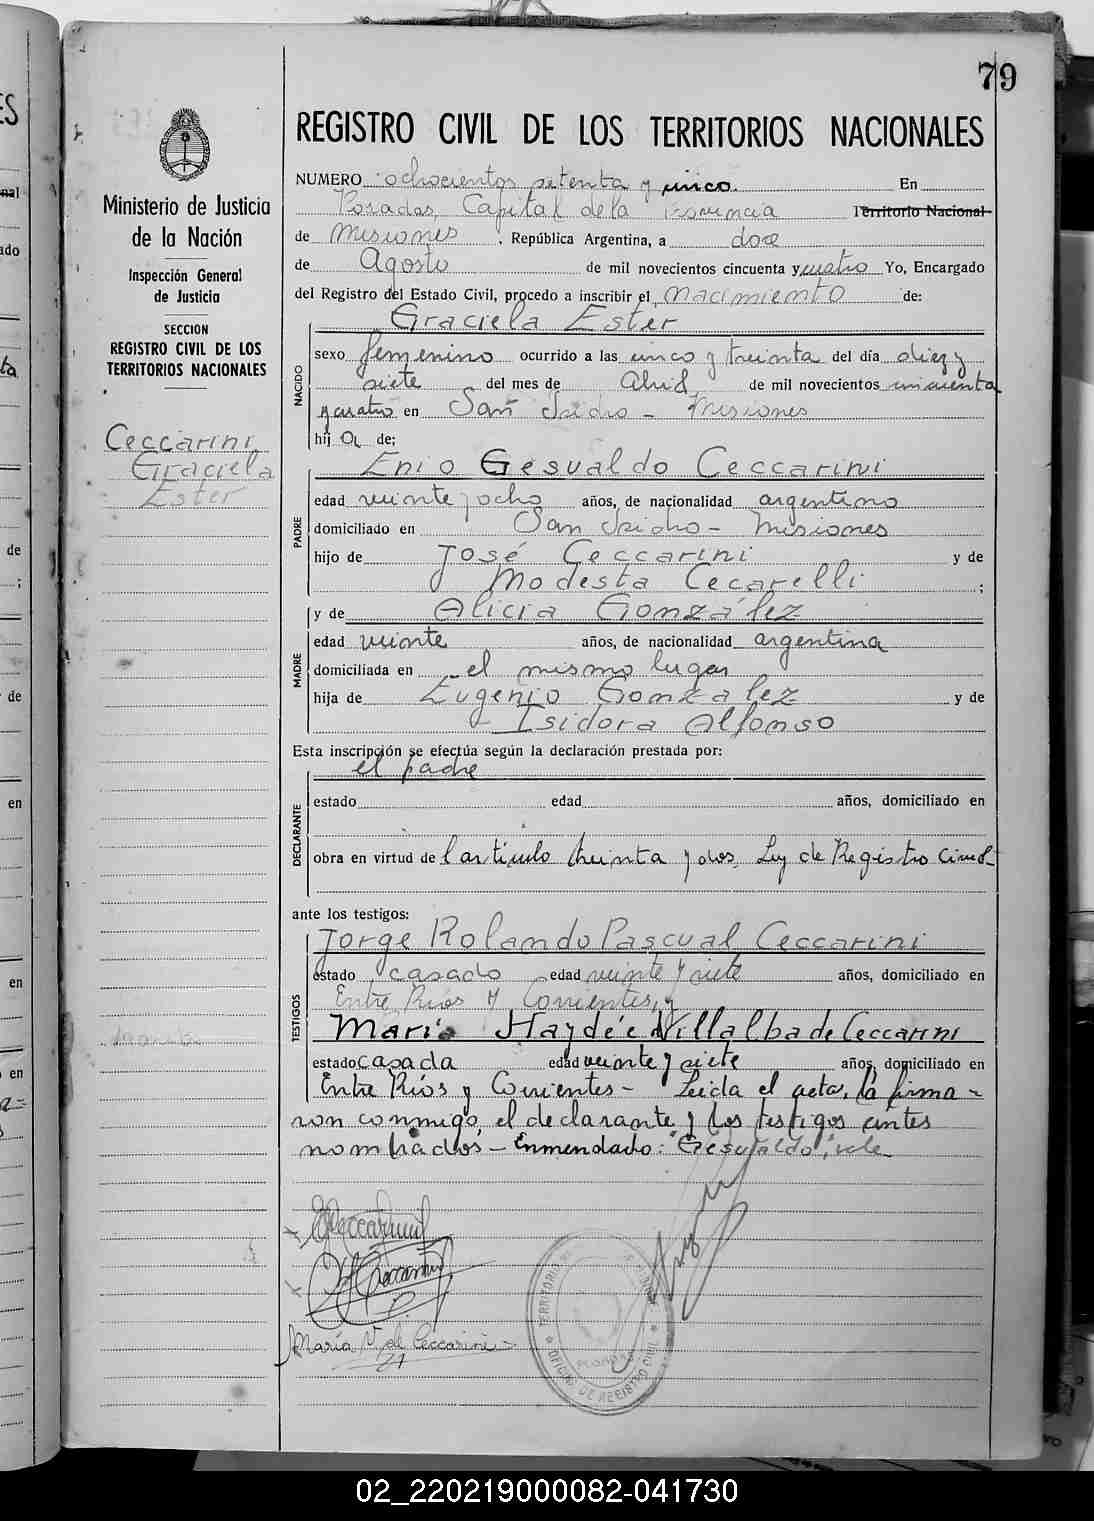 79
REGISTRO CIVIL DE LOS TERRITORIOS NACIONALES
Ministerio de Justicia
de la Nación
Inspección General
de Justicia
SECCION
REGISTRO CIVIL DE LOS
TERRITORIOS NACIONALES
Ceccarini
Graciela
Ester
NUMERO ochocientos setenta y cinco. En
Posadas, Capital de la Provincia Territorio Nacional
de Misiones, República Argentina, a doce
de Agosto de mil novecientos cincuenta y cuatro Yo, Encargado
del Registro del Estado Civil, procedo a inscribir el nacimiento de:
Graciela Ester
NACIDO
sexo femenino ocurrido a las cinco y treinta del día diez y
siete del mes de Abril de mil novecientos cincuenta
y cuatro en San Isidro - Misiones
hija de;
Enio Gesualdo Ceccarini
PADRE
edad veinte y ocho años, de nacionalidad argentino
domiciliado en San Isidro - Misiones
hijo de José Ceccarini y de
Modesta Cecarelli ;
y de Alicia González
MADRE
edad veinte años, de nacionalidad argentina
domiciliada en el mismo lugar
hija de Eugenio González y de
Isidora Alfonso
Esta inscripción se efectúa según la declaración prestada por:
el padre
DECLARANTE
estado edad años, domiciliado en
obra en virtud de l artículo treinta y dos, Ley de Registro Civil-
ante los testigos:
Jorge Rolando Pascual Ceccarini
TESTIGOS
estado casado edad veinte y siete años, domiciliado en
Entre Ríos y Corrientes, y
María Haydée Villalba de Ceccarini
estado casada edad veinte y siete años, domiciliado en
Entre Ríos y Corrientes - Leída el acta, la firma-
ron conmigo, el declarante y los testigos antes
nombrados - Enmendado: "Gesualdo", vale
María V. de Ceccarini
OFICINA DE REGISTRO CIVIL
TERRITORIO
02_220219000082-041730